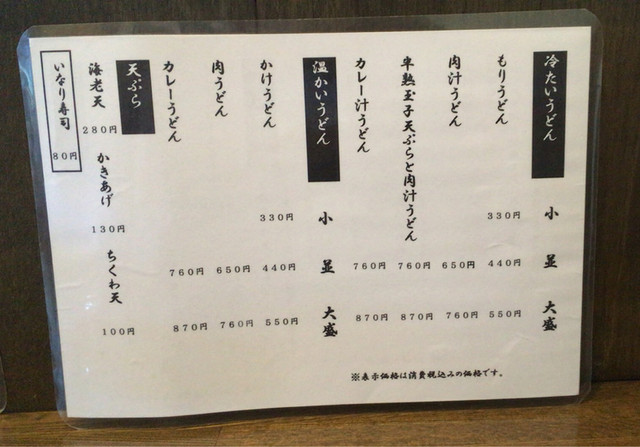 冷たいうどん 小 並 大盛
もりうどん 330円 440円 550円
肉汁うどん 650円 760円
半熟玉子天ぷらと肉汁うどん 760円 870円
カレー汁うどん 760円 870円
温かいうどん 小 並 大盛
かけうどん 330円 440円 550円
肉うどん 650円 760円
カレーうどん 760円 870円
天ぷら
海老天 280円 かきあげ 130円 ちくわ天 100円
いなり寿司 80円
※表示価格は消費税込みの価格です。